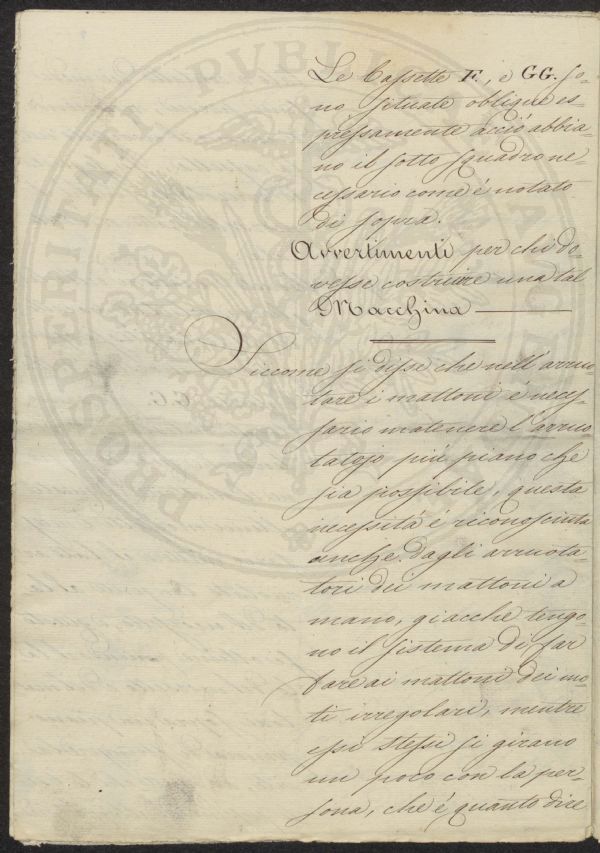 Le Cassette F., e GG. so=
no situate oblique es=
pressamente acciò abbia=
no il sotto squadro ne=
cessario come é notato
di sopra.
Avvertimenti per chi do=
vesse costruire una tal
Macchina
Siccome si disse che nell' arruo=
tare i mattoni é neces=
sario matenere l' arruo=
tatojo più piano che
sia possibile, questa
necessità é riconosciuta
anche dagli arruota=
tori dei mattoni a
mano, giacche tengo=
no il sistema di far
fare ai mattoni dei mo=
ti irregolari, mentre
essi stessi si girano
un poco con la per=
sona, che é quanto dire
PROSPERITATI PUBLICAE